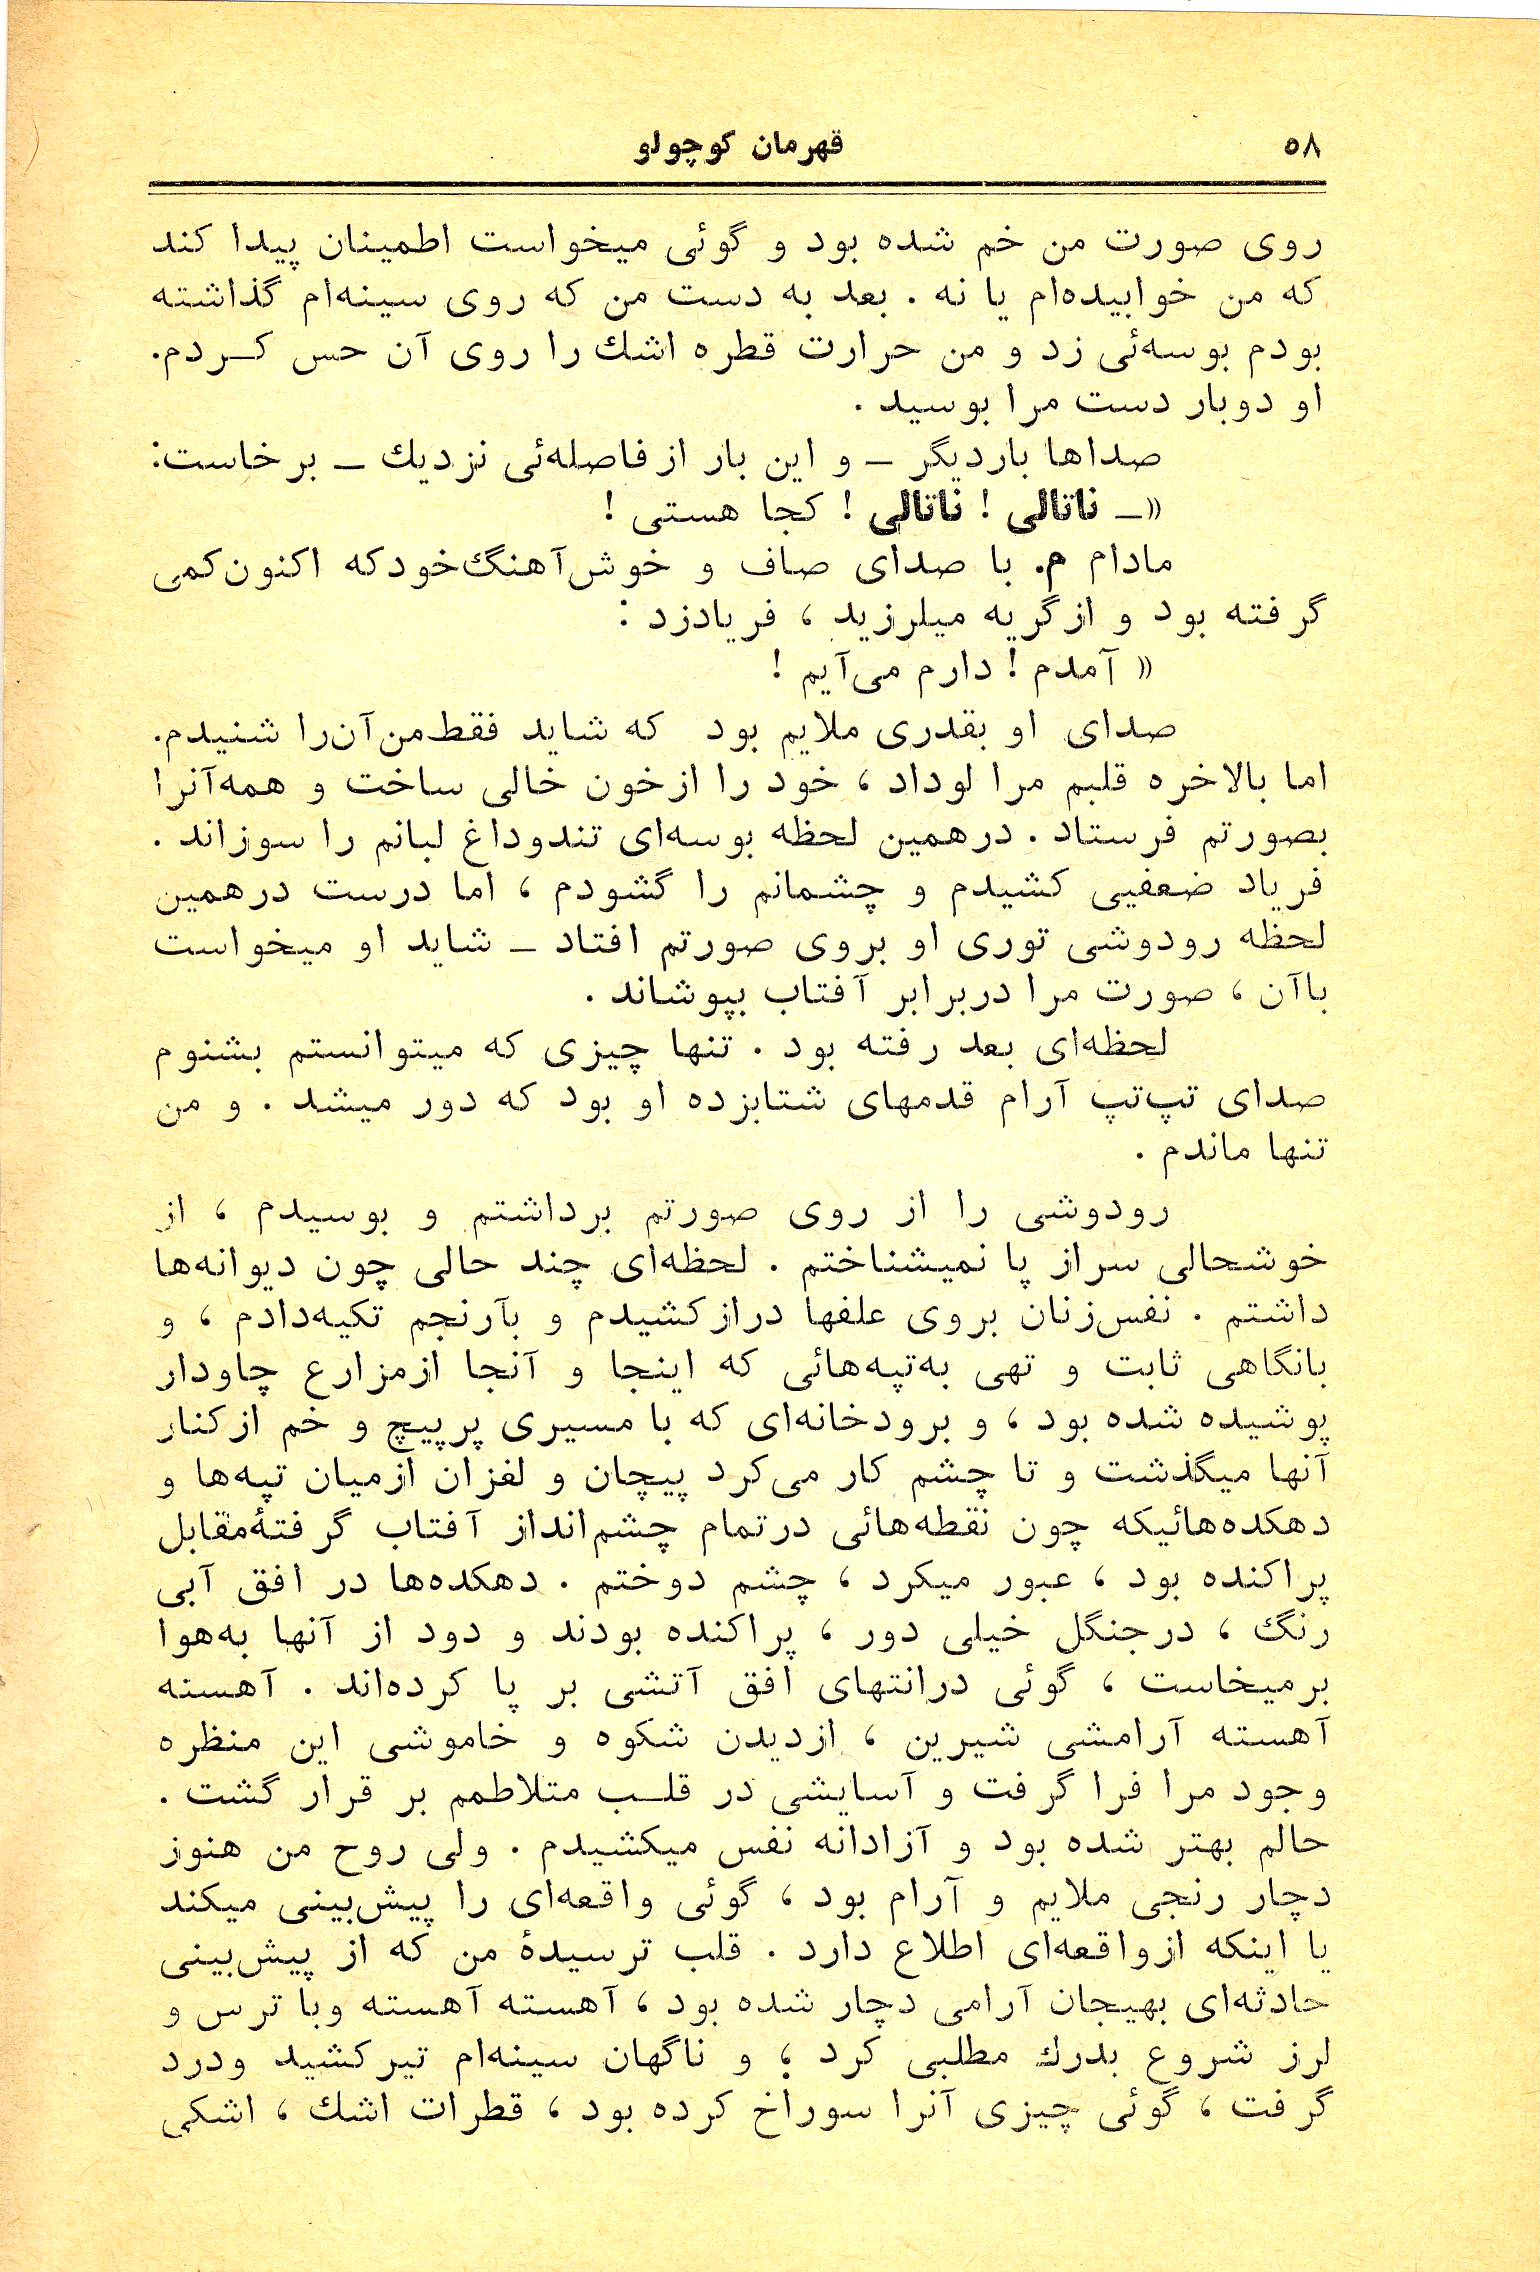 ۵۸
قهرمان کوچولو
روی صورت من خم شده بود و گوئی میخواست اطمینان پیدا کند
که من خوابیده‌ام یا نه . بعد به دست من که روی سینه‌ام گذاشته
بودم بوسه‌ئی زد و من حرارت قطره اشك را روی آن حس کـردم.
او دوبار دست مرا بوسید .
صداها باردیگر ـ و این بار از فاصله‌ئی نزدیك ـ برخاست:
«ـ ناتالی ! ناتالی ! کجا هستی !
مادام م. با صدای صاف و خوش‌آهنگ‌خودکه اکنون‌کمی
گرفته بود و ازگریه میلرزید ، فریادزد :
« آمدم ! دارم می‌آیم !
صدای او بقدری ملایم بود که شاید فقط‌من‌آن‌را شنیدم.
اما بالاخره قلبم مرا لوداد ، خود را ازخون خالی ساخت و همه‌آنرا
بصورتم فرستاد . درهمین لحظه بوسه‌ای تندوداغ لبانم را سوزاند .
فریاد ضعفیی کشیدم و چشمانم را گشودم ، اما درست درهمین
لحظه رودوشی توری او بروی صورتم افتاد ـ شاید او میخواست
باآن ، صورت مرا دربرابر آفتاب بپوشاند .
لحظه‌ای بعد رفته بود . تنها چیزی که میتوانستم بشنوم
صدای تپ‌تپ آرام قدمهای شتابزده او بود که دور میشد . و من
تنها ماندم .
رودوشی را از روی صورتم برداشتم و بوسیدم ، از
خوشحالی سراز پا نمیشناختم . لحظه‌ای چند حالی چون دیوانه‌ها
داشتم . نفس‌زنان بروی علفها درازکشیدم و بآرنجم تکیه‌دادم ، و
بانگاهی ثابت و تهی به‌تپه‌هائی که اینجا و آنجا ازمزارع چاودار
پوشیده شده بود ، و برودخانه‌ای که با مسیری پرپیچ و خم ازکنار
آنها میگذشت و تا چشم کار می‌کرد پیچان و لغزان ازمیان تپه‌ها و
دهکده‌هائیکه چون نقطه‌هائی درتمام چشم‌انداز آفتاب گرفتهٔ‌مقابل
پراکنده بود ، عبور میکرد ، چشم دوختم . دهکده‌ها در افق آبی
رنگ ، درجنگل خیلی دور ، پراکنده بودند و دود از آنها به‌هوا
برمیخاست ، گوئی درانتهای افق آتشی بر پا کرده‌اند . آهسته
آهسته آرامشی شیرین ، ازدیدن شکوه و خاموشی این منظره
وجود مرا فرا گرفت و آسایشی در قلـب متلاطمم بر قرار گشت .
حالم بهتر شده بود و آزادانه نفس میکشیدم . ولی روح من هنوز
دچار رنجی ملایم و آرام بود ، گوئی واقعه‌ای را پیش‌بینی میکند
یا اینکه ازواقعه‌ای اطلاع دارد . قلب ترسیدهٔ من که از پیش‌بینی
حادثه‌ای بهیجان آرامی دچار شده بود ، آهسته آهسته وبا ترس و
لرز شروع بدرك مطلبی کرد ؛ و ناگهان سینه‌ام تیرکشید ودرد
گرفت ، گوئی چیزی آنرا سوراخ کرده بود ، قطرات اشك ، اشکی